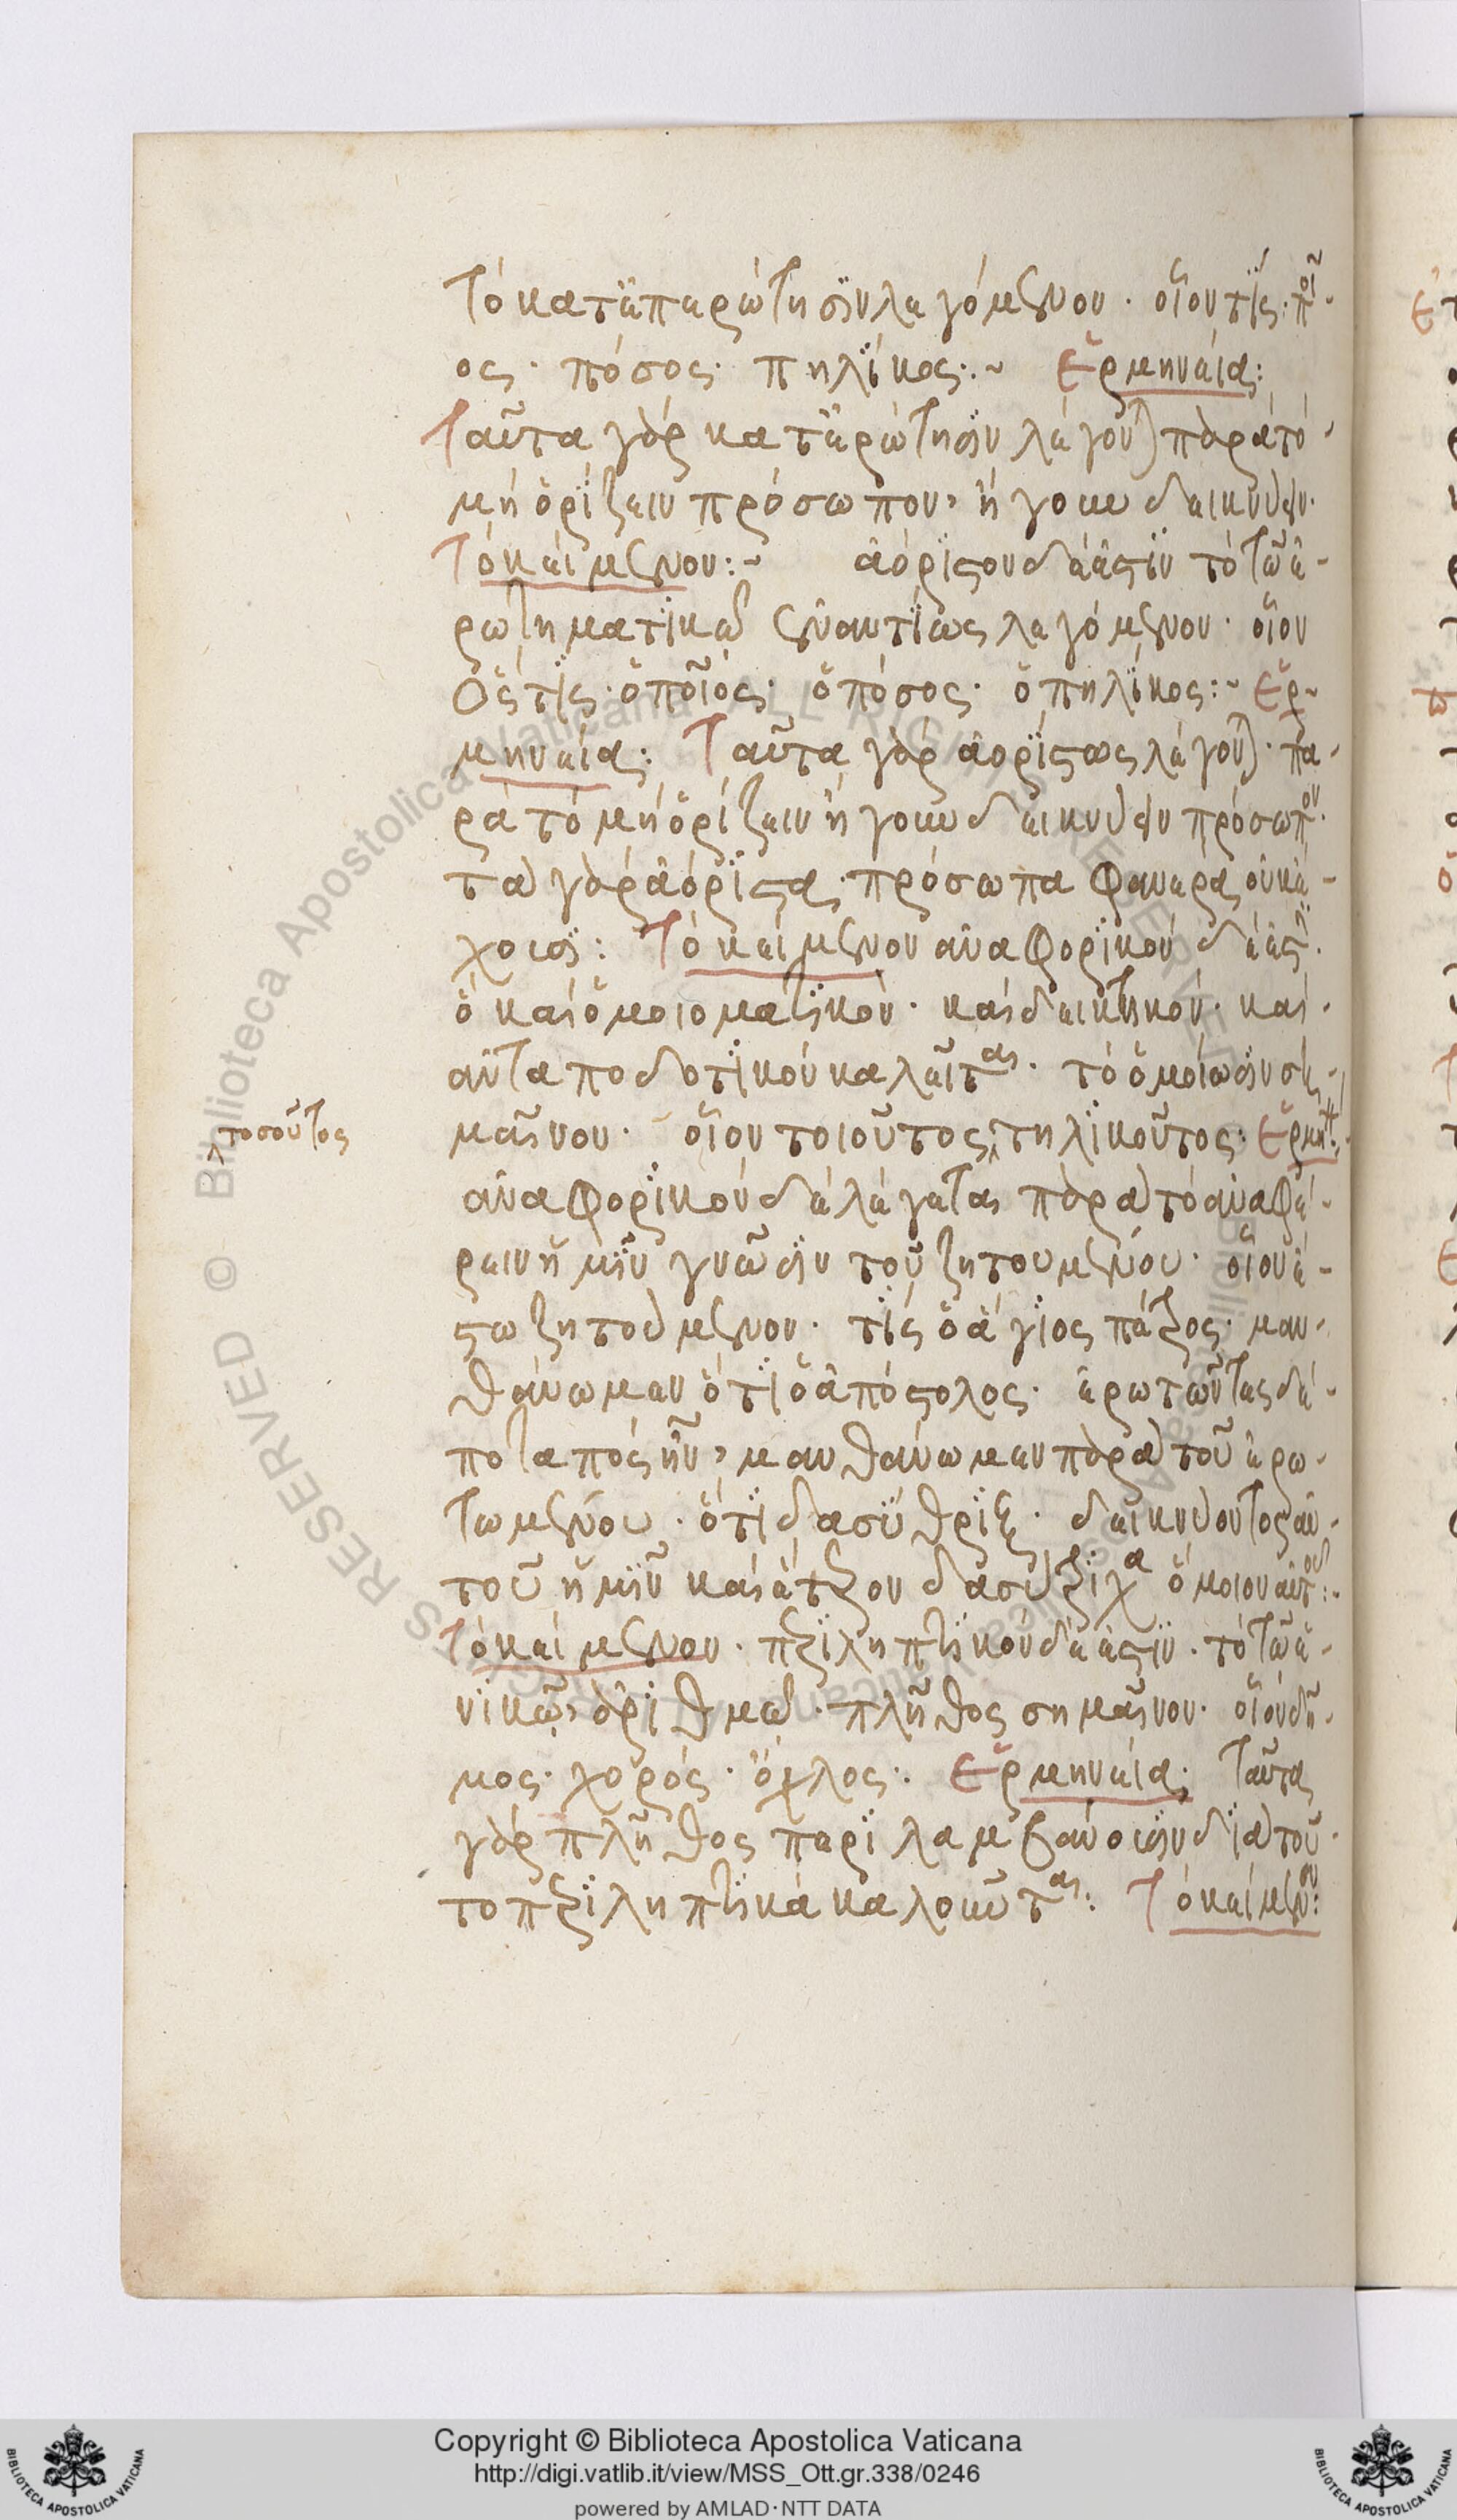 τὸ κατ' ἐπερώτησιν λεγόμενον· οἷον τίς· ποῖ-
ος· πόσος· πηλίκος:~ Ἑρμηνεία:
Ταῦτα γὰρ κατ' ἐρώτησιν λέγονται παρὰ τὸ
μὴ ὁρίζειν πρόσωπον, ἤγουν δεικνύειν·
Τὸ κείμενον:~ ἀόριστον δέ ἐστιν τὸ τῶ ἐ-
ρωτηματικῶ ἐναντίως λεγόμενον· οἷον
Ὅστις· ὁποῖος· ὁπόσος· ὁπηλίκος:~ Ἑρ-
μηνεία: Ταῦτα γὰρ ἀορίστως λέγονται· πα-
ρὰ τὸ μὴ ὁρίζειν ἤγουν δεικνύειν πρόσωπον·
τὰ γὰρ ἀόριστα πρόσωπα φανερὰ οὐκ ἔ-
χουσι: Τὸ κείμενον ἀναφορικὸν δέ ἐστιν·
ὃ καὶ ὁμοιοματικὸν· καὶ δεικτικὸν· καὶ
ἀνταποδοτικὸν καλεῖται· τὸ ὁμοίωσιν ση-
μαῖνον· οἷον τοιοῦτος, τηλικοῦτος: Ἑρμη:
τοσοῦτος
ἀναφορικὸν δὲ λέγεται παρὰ τὸ ἀναφέ-
ρειν ἡμῖν γνῶσιν τοῦ ζητουμένου· οἷον ἔ-
στω ζητούμενον· τίς ὁ ἅγιος πέτρος· μαν-
θάνωμεν ὅτι ὁ ἀπόστολος· ἐρωτῶντες δέ
ποταπός ἦν, μανθάνωμεν παρὰ τοῦ ἐρω-
τωμένου· ὅτι δασύθριξ· δεικνύοντος αὐ-
τοῦ ἡμῖν καὶ ἕτερον δασύτριχα ὅμοιον αὐτοῦ:
Τὸ κείμενον· περιληπτικὸν δέ ἐστιν· τὸ τῶ ἑ-
νικῶ, ἀριθμῶ· πλῆθος σημαῖνον· οἷον δῆ-
μος· χορός· ὄχλος: Ἑρμηνεία: Ταῦτα
γὰρ πλῆθος περιλαμβάνουσιν διὰ τοῦ-
το περιληπτικὰ καλοῦνται: Τὸ κείμενον:
Copyright © Biblioteca Apostolica Vaticana
http://digi.vatlib.it/view/MSS_Ott.gr.338/0246
powered by AMLAD·NTT DATA